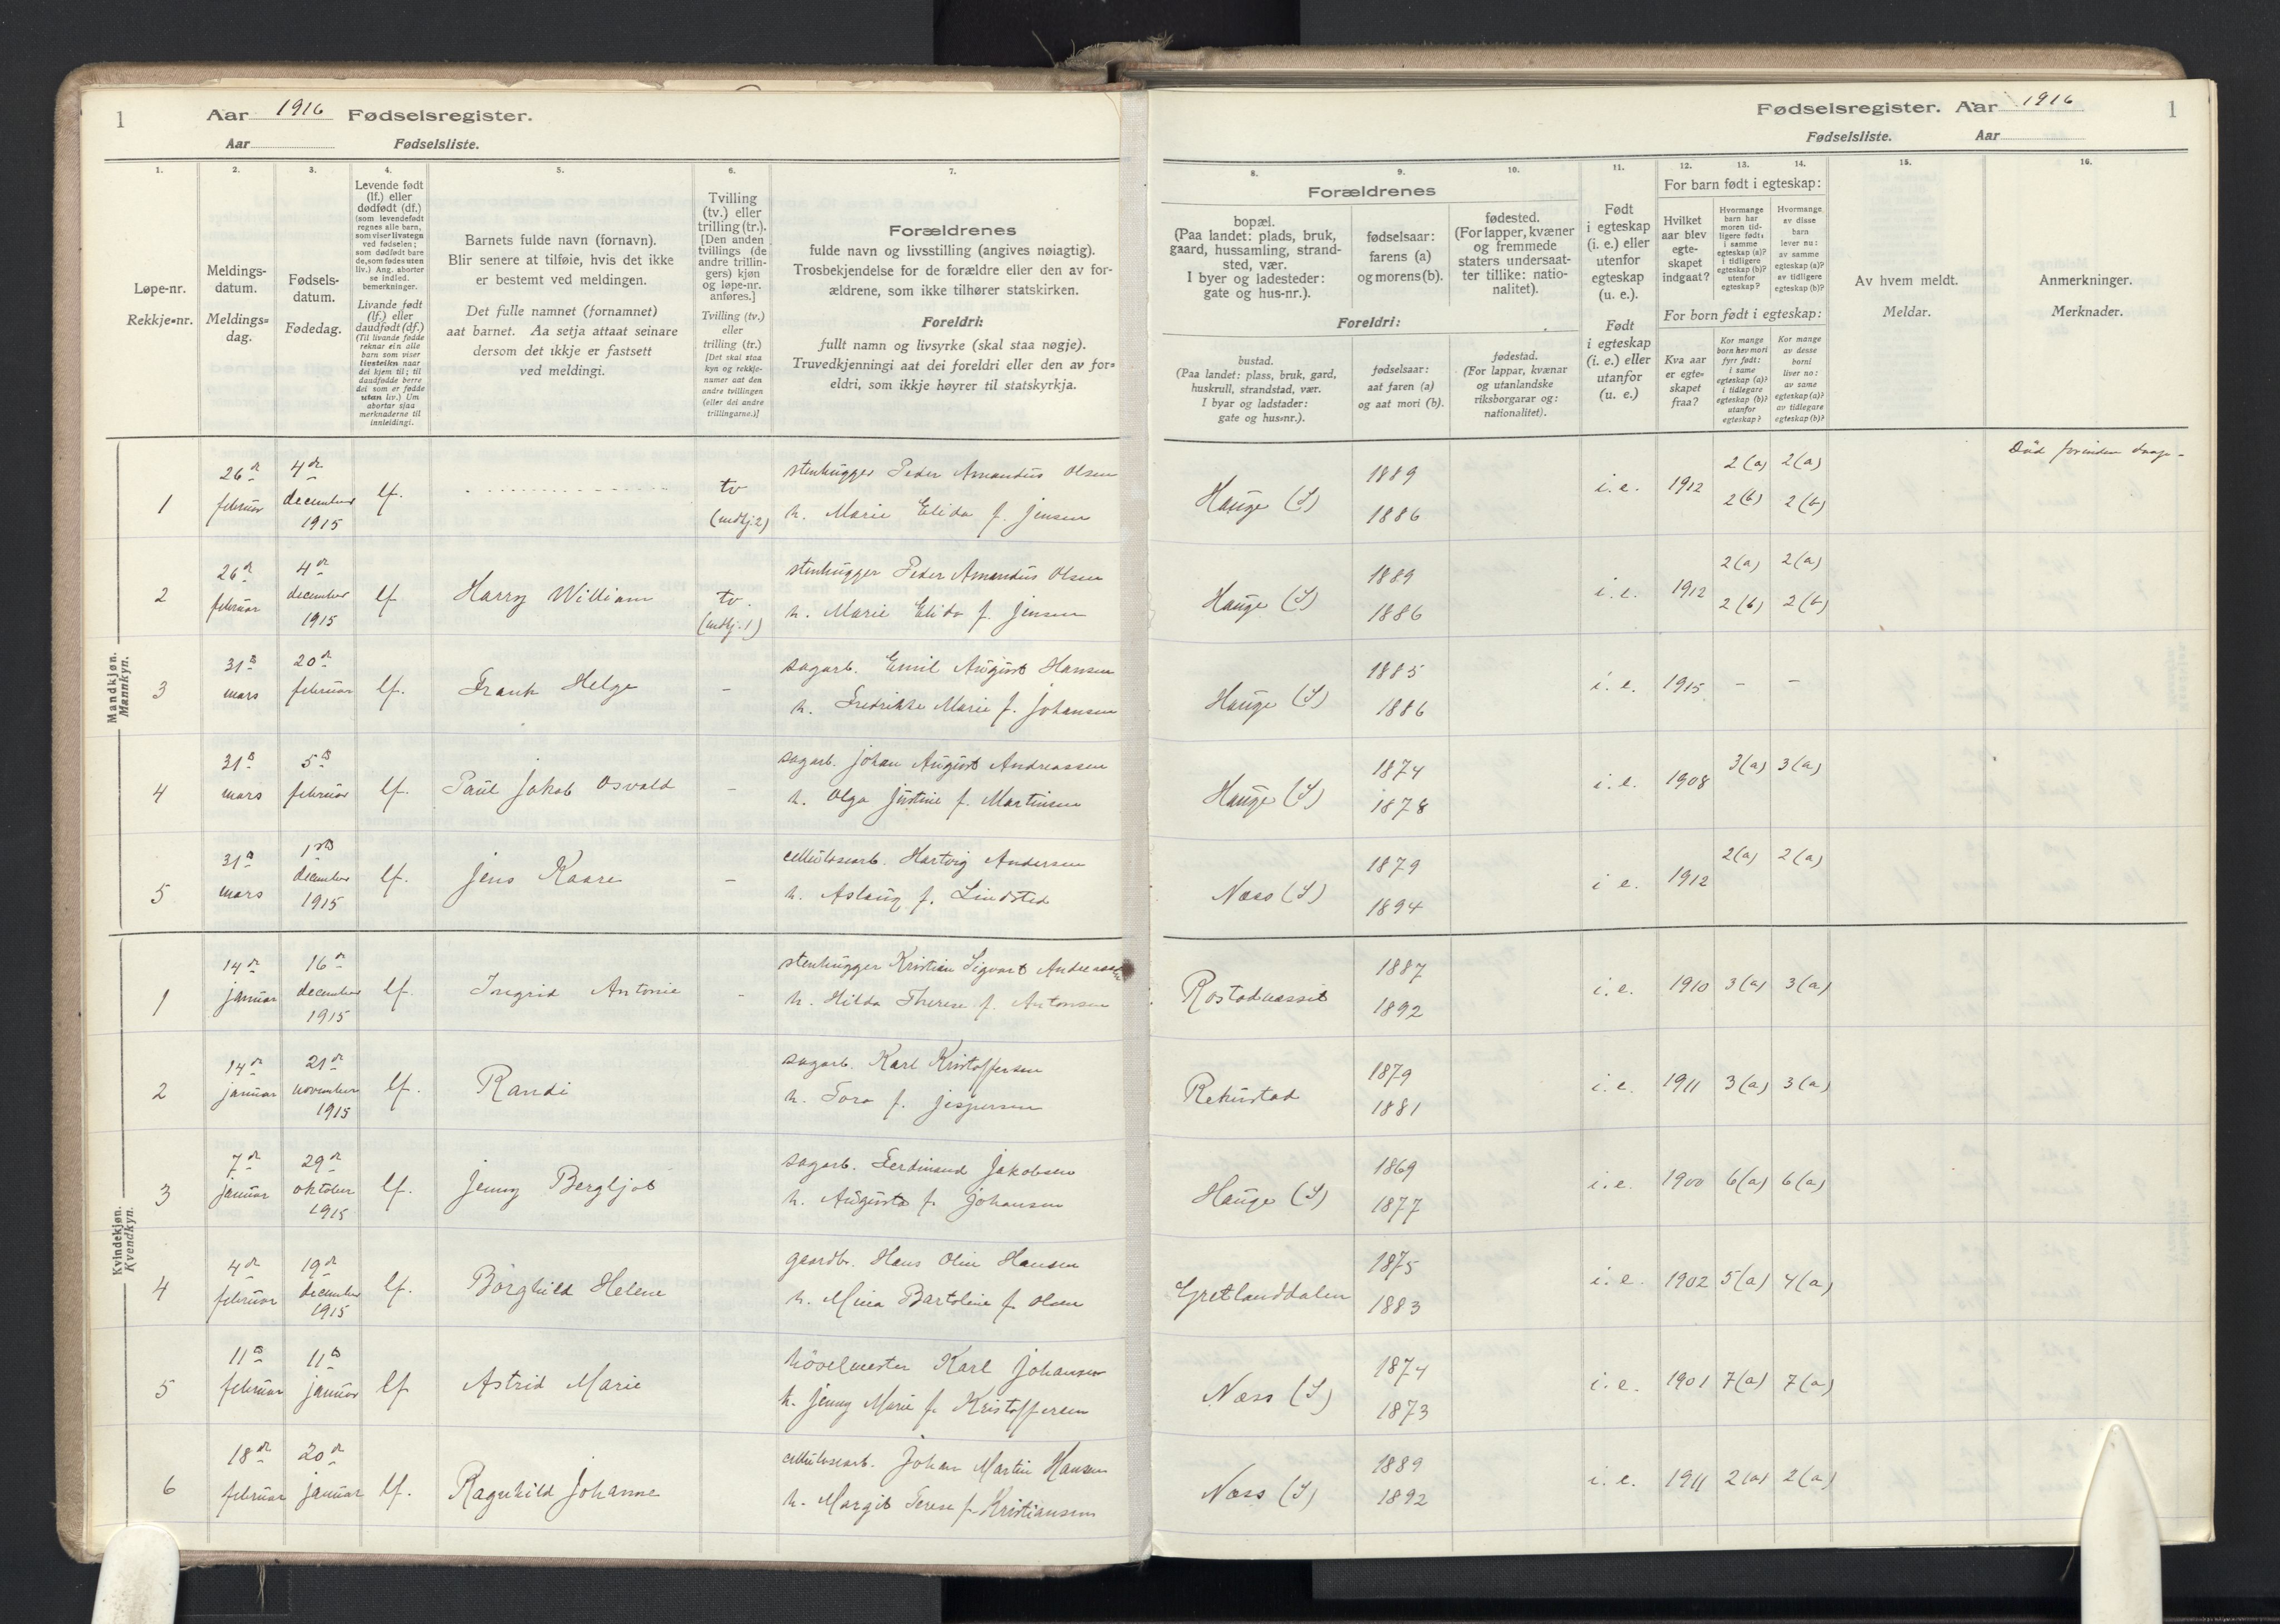 1
Aar 1916 Fødselsregister.
Aar Fødselsliste.
1.
Løpe-nr.
Rekkje-nr.
2.
Meldings-
datum.
Meldings=
dag.
3.
Fødsels-
datum.
Fødedag.
4.
Levende født
(lf.) eller
dødfødt (df.)
(som levendefødt
regnes alle barn,
som viser livstegn
ved fødselen;
som dødfødt bare
de, som fødes uten
liv.) Ang. aborter
se indled.
bemerkninger.
Livande født
(lf.) eller
daudfødt (df.)
(Til livande fødde
reknar ein alle
barn som viser
livsteikn naar
dei kjem til; til
daudfødde berre
dei som er fødde
utan liv.) Um
abortar sjaa
merknaderne til
innleidingi.
5.
Barnets fulde navn (fornavn).
Blir senere at tilføie, hvis det ikke
er bestemt ved meldingen.
Det fulle namnet (fornamnet)
aat barnet. Aa setja attaat seinare
dersom det ikkje er fastsett
ved meldingi.
6.
Tvilling
(tv.) eller
trilling (tr.).
[Den anden
tvillings (de
andre trillin-
gers) kjøn
og løpe-nr.
anføres.]
Tvilling (tv.)
eller
trilling (tr.)
[Det skal staa
kyn og rekkje-
numer aat den
andre tvillingen
(eller dei andre
trillingarne.)]
7.
Forældrenes
fulde navn og livsstilling (angives nøiagtig).
Trosbekjendelse for de forældre eller den av for-
ældrene, som ikke tilhører statskirken.
Foreldri:
fullt namn og livsyrke (skal staa nøgje).
Truvedkjenningi aat dei foreldri eller den av for=
eldri, som ikkje høyrer til statskyrkja.
Mandkjøn.
Mannkyn.
1
26de februar
4de december 1915
lf.
tv (mdkj. 2)
stenhugger Peder Amandus Olsen
h. Marie Elida f. Jensen
2
26de februar
4de december 1915
lf
Harry William
tv. (mdkj. 1)
stenhugger Peder Amandus Olsen
h. Marie Elida f. Jensen
3
31te mars
20de februar
lf.
Frank Helge
-
sagarb. Emil August Hansen
h. Fredrikke Marie f. Johansen
4
31te mars
5te februar
lf.
Paul Jakob Osvald
-
sagarb. Johan August Andreassen
h. Olga Justine f. Martinsen
5
31te mars
1ste december 1915
lf.
Jens Kaare
-
cellulosearb. Hartvig Andersen
h. Aslaug f. Lindsted
Kvindekjøn.
Kvendkyn.
1
14de januar
16de december 1915
lf.
Ingrid Antonie
-
stenhugger Kristian Sigvart Andreassen
h. Hilda Therese f. Antonsen
2
14de januar
21de november 1915
lf.
Randi
sagarb. Karl Kristoffersen
h. Tora f. Jespersen
3
7de januar
29de oktober 1915
lf.
Jenny Bergljot
sagarb. Ferdinand Jakobsen
h. Augusta f. Johansen
4
4de februar
19de december 1915
lf.
Borghild Helene
gaardbr. Hans Olin Hansen
h. Mina Bartoline f. Olsen
5
11te februar
11te januar
lf
Astrid Marie
hövelmester Karl Johansen
h. Jenny Marie f. Kristoffersen
6
18de februar
20de januar
lf.
Ragnhild Johanne
cellulosearb. Johan Martin Hansen
h. Margit Terese f. Kristiansen
Fødselsregister. Aar 1916
1
Fødselsliste. Aar
8. 9. 10.
Forældrenes
bopæl.
(Paa landet: plads, bruk,
gaard, hussamling, strand-
sted, vær.
I byer og ladesteder:
gate og hus-nr.).
fødselsaar:
farens (a)
og morens (b).
fødested.
(For lapper, kvæner
og fremmede
staters undersaat-
ter tillike: natio-
nalitet).
Foreldri:
bustad.
(Paa landet: plass, bruk, gard,
huskrull, strandstad, vær.
I byar og ladstader:
gate og hus=nr.).
fødselsaar:
aat faren (a)
og aat mori (b).
fødestad.
(For lappar, kvænar
og utanlandske
riksborgarar og:
nationalitet).
11.
Født
i egteskap
(i. e.) eller
utenfor
egteskap
(u. e.).
Født
i egteskap
(i. e.) eller
utanfor
(u. e.)
12. 13. 14.
For barn født i egteskap:
Hvilket
aar blev
egte-
skapet
indgaat?
Hvormange
barn har
moren tid-
ligere født:
i samme
egteskap (a)?
i tidligere
egteskap (b)?
utenfor
egteskap?
Hvormange
av disse
barn
lever nu:
av samme
egteskap (a)?
av tidligere
egteskap (b)?
For born født i egteskap:
Kva aar
er egte-
skapet
fraa?
Kor mange
born hev mori
fyrr født:
i same
egteskap (a)?
i tidlegare
egteskap (b)?
utanfor
egteskap?
Kor mange
av desse
borni
liver no:
av same
egteskap (a)?
av tidlegare
egteskap (b)?
15.
Av hvem meldt.
Meldar.
16.
Anmerkninger.
Merknader.
Hauge (S) 1889 1886 i. e. 1912 2(a) 2(b) 2(a) 2(b)
Hauge (S) 1889 1886 i. e. 1912 2(a) 2(b) 2(a) 2(b)
Hauge (S) 1885 1886 i. e. 1915 - -
Hauge (S) 1874 1878 i. e. 1908 3(a) 3(a)
Næss (S) 1879 1894 i e. 1912 2(a) 2(a)
1887 1892 i. e. 1910 3(a) 3(a)
Rekustad 1879 1881 i. e. 1911 3(a) 3(a)
Hauge (S) 1869 1877 i. e. 1900 6(a) 6(a)
Gretlanddalen 1875 1883 i. e. 1902 5(a) 4(a)
Næss (S) 1874 1873 i. e. 1901 7(a) 7(a)
Næss (S) 1889 1892 i. e. 1911 2(a) 2(a)